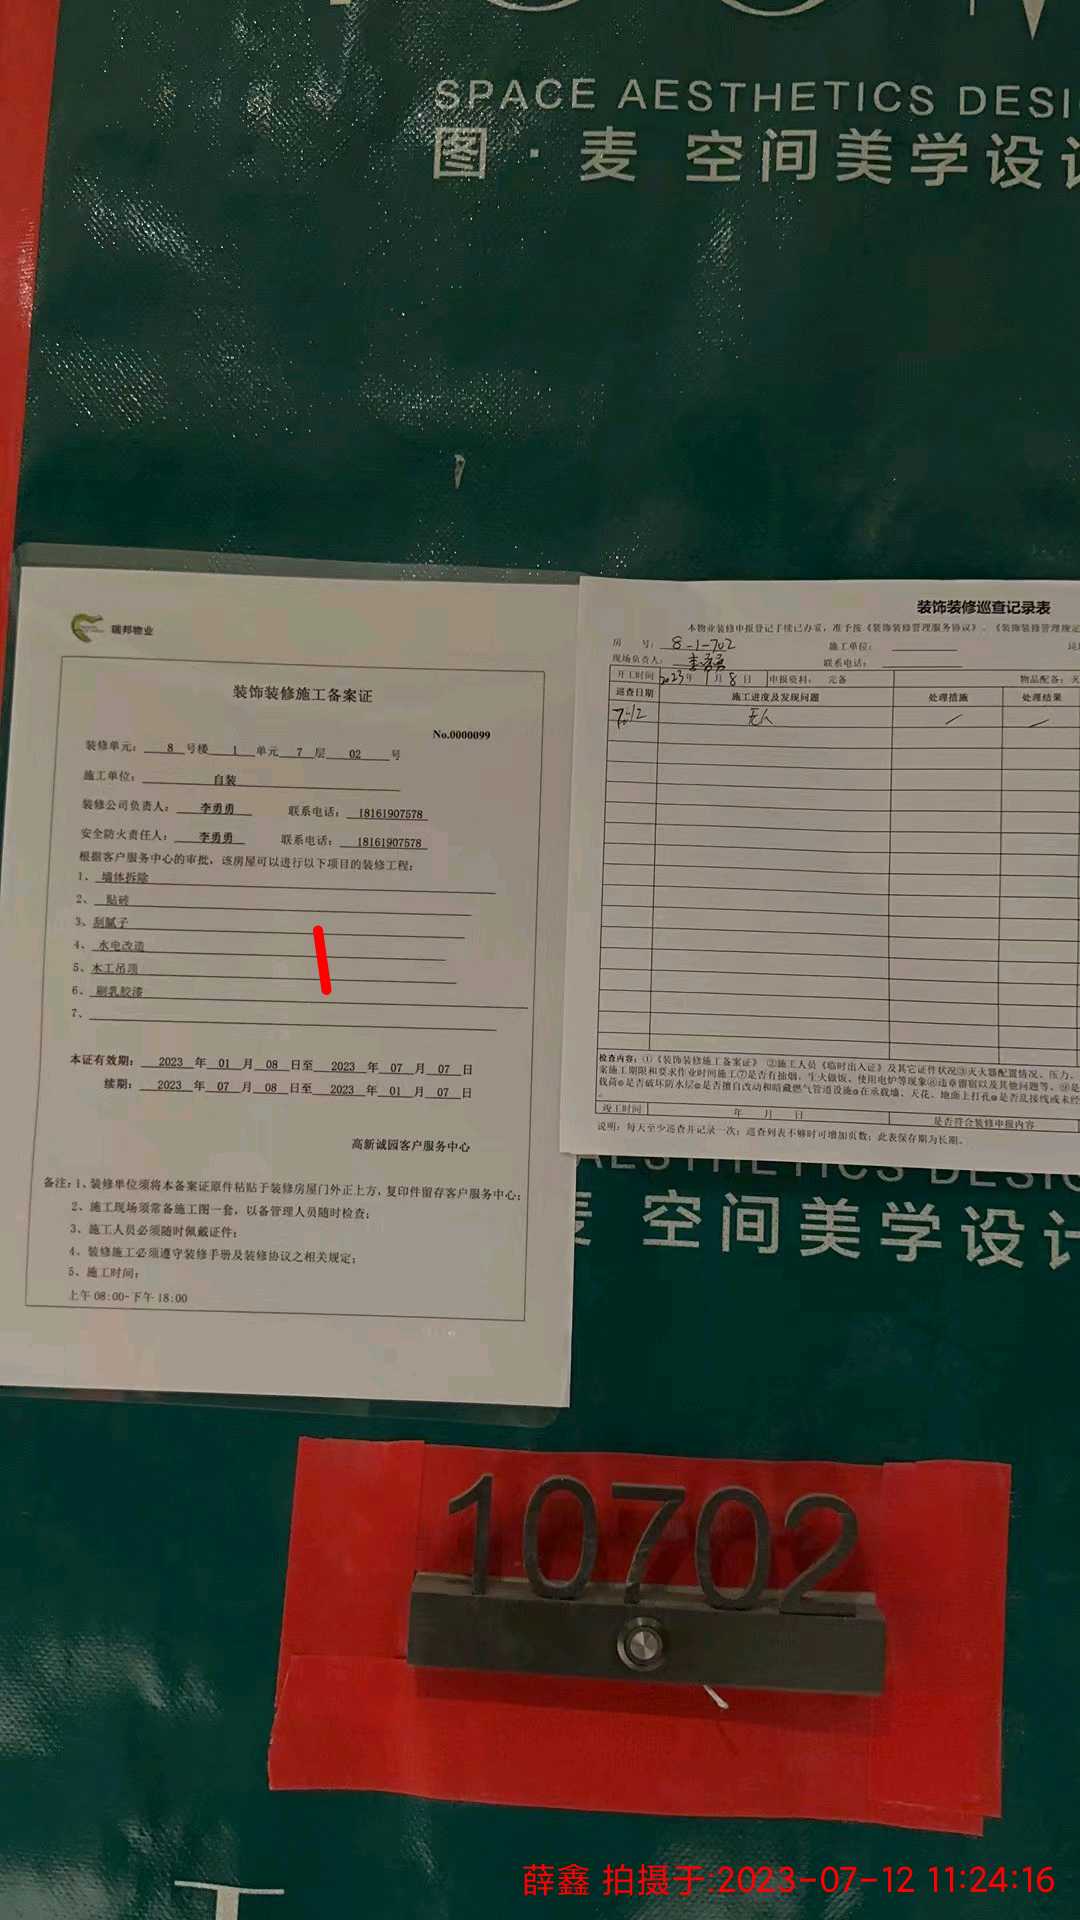 SPACE AESTHETICS DESI
图·麦 空间美学设计
瑞邦物业
装饰装修施工备案证
No.0000099
装修单元: 8 号楼 1 单元 7 层 02 号
施工单位: 自装
装修公司负责人: 李勇勇 联系电话: 18161907578
安全防火责任人: 李勇勇 联系电话: 18161907578
根据客户服务中心的审批，该房屋可以进行以下项目的装修工程:
1、墙体拆除
2、贴砖
3、刮腻子
4、水电改造
5、木工吊顶
6、刷乳胶漆
7、
本证有效期: 2023 年 01 月 08 日至 2023 年 07 月 07 日
续期: 2023 年 07 月 08 日至 2023 年 01 月 07 日
高新诚园客户服务中心
备注: 1、装修单位须将本备案证原件粘贴于装修房屋门外正上方，复印件留存客户服务中心;
2、施工现场须常备施工图一套，以备管理人员随时检查;
3、施工人员必须随时佩戴证件;
4、装修施工必须遵守装修手册及装修协议之相关规定;
5、施工时间:
上午 08:00-下午 18:00
装饰装修巡查记录表
本物业装修申报登记手续已办妥，准予按《装饰装修管理服务协议》、《装饰装修管理规定
房 号: 8-1-702 施工单位:
现场负责人: 李勇勇 联系电话:
开工时间 2023 年 1 月 8 日 申报资料: 完备 物品配备:
巡查日期 施工进度及发现问题 处理措施 处理结果
7-12 无人
检查内容: ①《装饰装修施工备案证》 ②施工人员《临时出入证》及其它证件状况③灭火器配置情况、压力、
案施工期限和要求作业时间施工⑦是否有抽烟、生火做饭、使用电炉等现象⑧违章留宿以及其他问题等。⑨是
载荷 是否破坏防水层 是否擅自改动和暗藏燃气管道设施 在承载墙、天花、地面上打孔 是否乱接线或未经
竣工时间 年 月 日 是否符合装修申报内容
说明: 每天至少巡查并记录一次; 巡查列表不够时可增加页数; 此表保存期为长期。
AESTHETICS DESIG
麦 空间美学设计
10702
薛鑫 拍摄于:2023-07-12 11:24:16